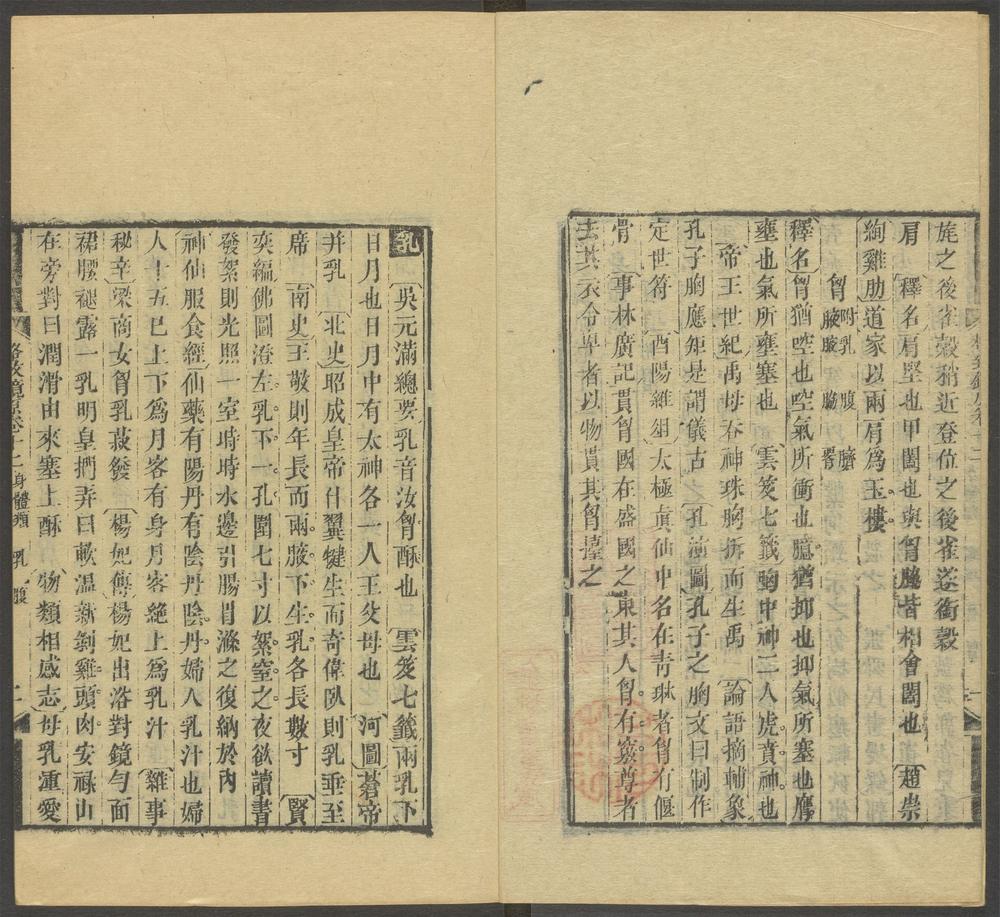 旄之後雀縠稍近登位之後雀送銜縠
肩〔釋名〕肩堅也甲闔也與胷脇皆相會闔也〔趙崇
絢雞肋〕道家以兩肩爲玉樓
胷附乳 腹 臍 腋腋 胁 臀
釋名〕胷猶啌也啌氣所衝也臆猶抑也抑氣所塞也膺
壅也氣所壅塞也〔雲笈七籤〕胸中神二人虎賁神也
〔帝王世紀〕禹母吞神珠胸拆而生禹〔論語摘輔象〕
孔子胸應矩是謂儀古〔孔演圖〕孔子之胸文曰制作
定世符〔酉陽雜俎〕太極眞仙中名在靑琳者胷有偃
骨〔事林廣記〕貫胷國在盛國之東其人胷有竅尊者
去其衣令卑者以物貫其胷擡之
乳〔吳元滿總要〕乳音汝胷酥也〔雲笈七籤〕兩乳下
日月也日月中有太神各一人王父母也〔河圖〕蒼帝
幷乳〔北史〕昭成皇帝什翼犍生而奇偉臥則乳垂至
席〔南史〕王敬則年長而兩腋下生乳各長數寸〔賢
奕編〕佛圖澄左乳下一孔圍七寸以絮窒之夜欲讀書
發絮則光照一室時時水邊引腸胃滌之復納於內
〔神仙服食經〕仙藥有陽丹有陰丹陰丹婦人乳汁也婦
人十五已上下爲月客有身月客絶上爲乳汁〔雜事
秘辛〕梁商女胷乳菽發〔楊妃傳〕楊妃出浴對鏡勻面
裙腰褪露一乳明皇捫弄曰軟溫新剝雞頭肉安祿山
在旁對曰潤滑由來塞上酥〔物類相感志〕母乳重愛
格致鏡原卷十二 身體類 乳 腹 二